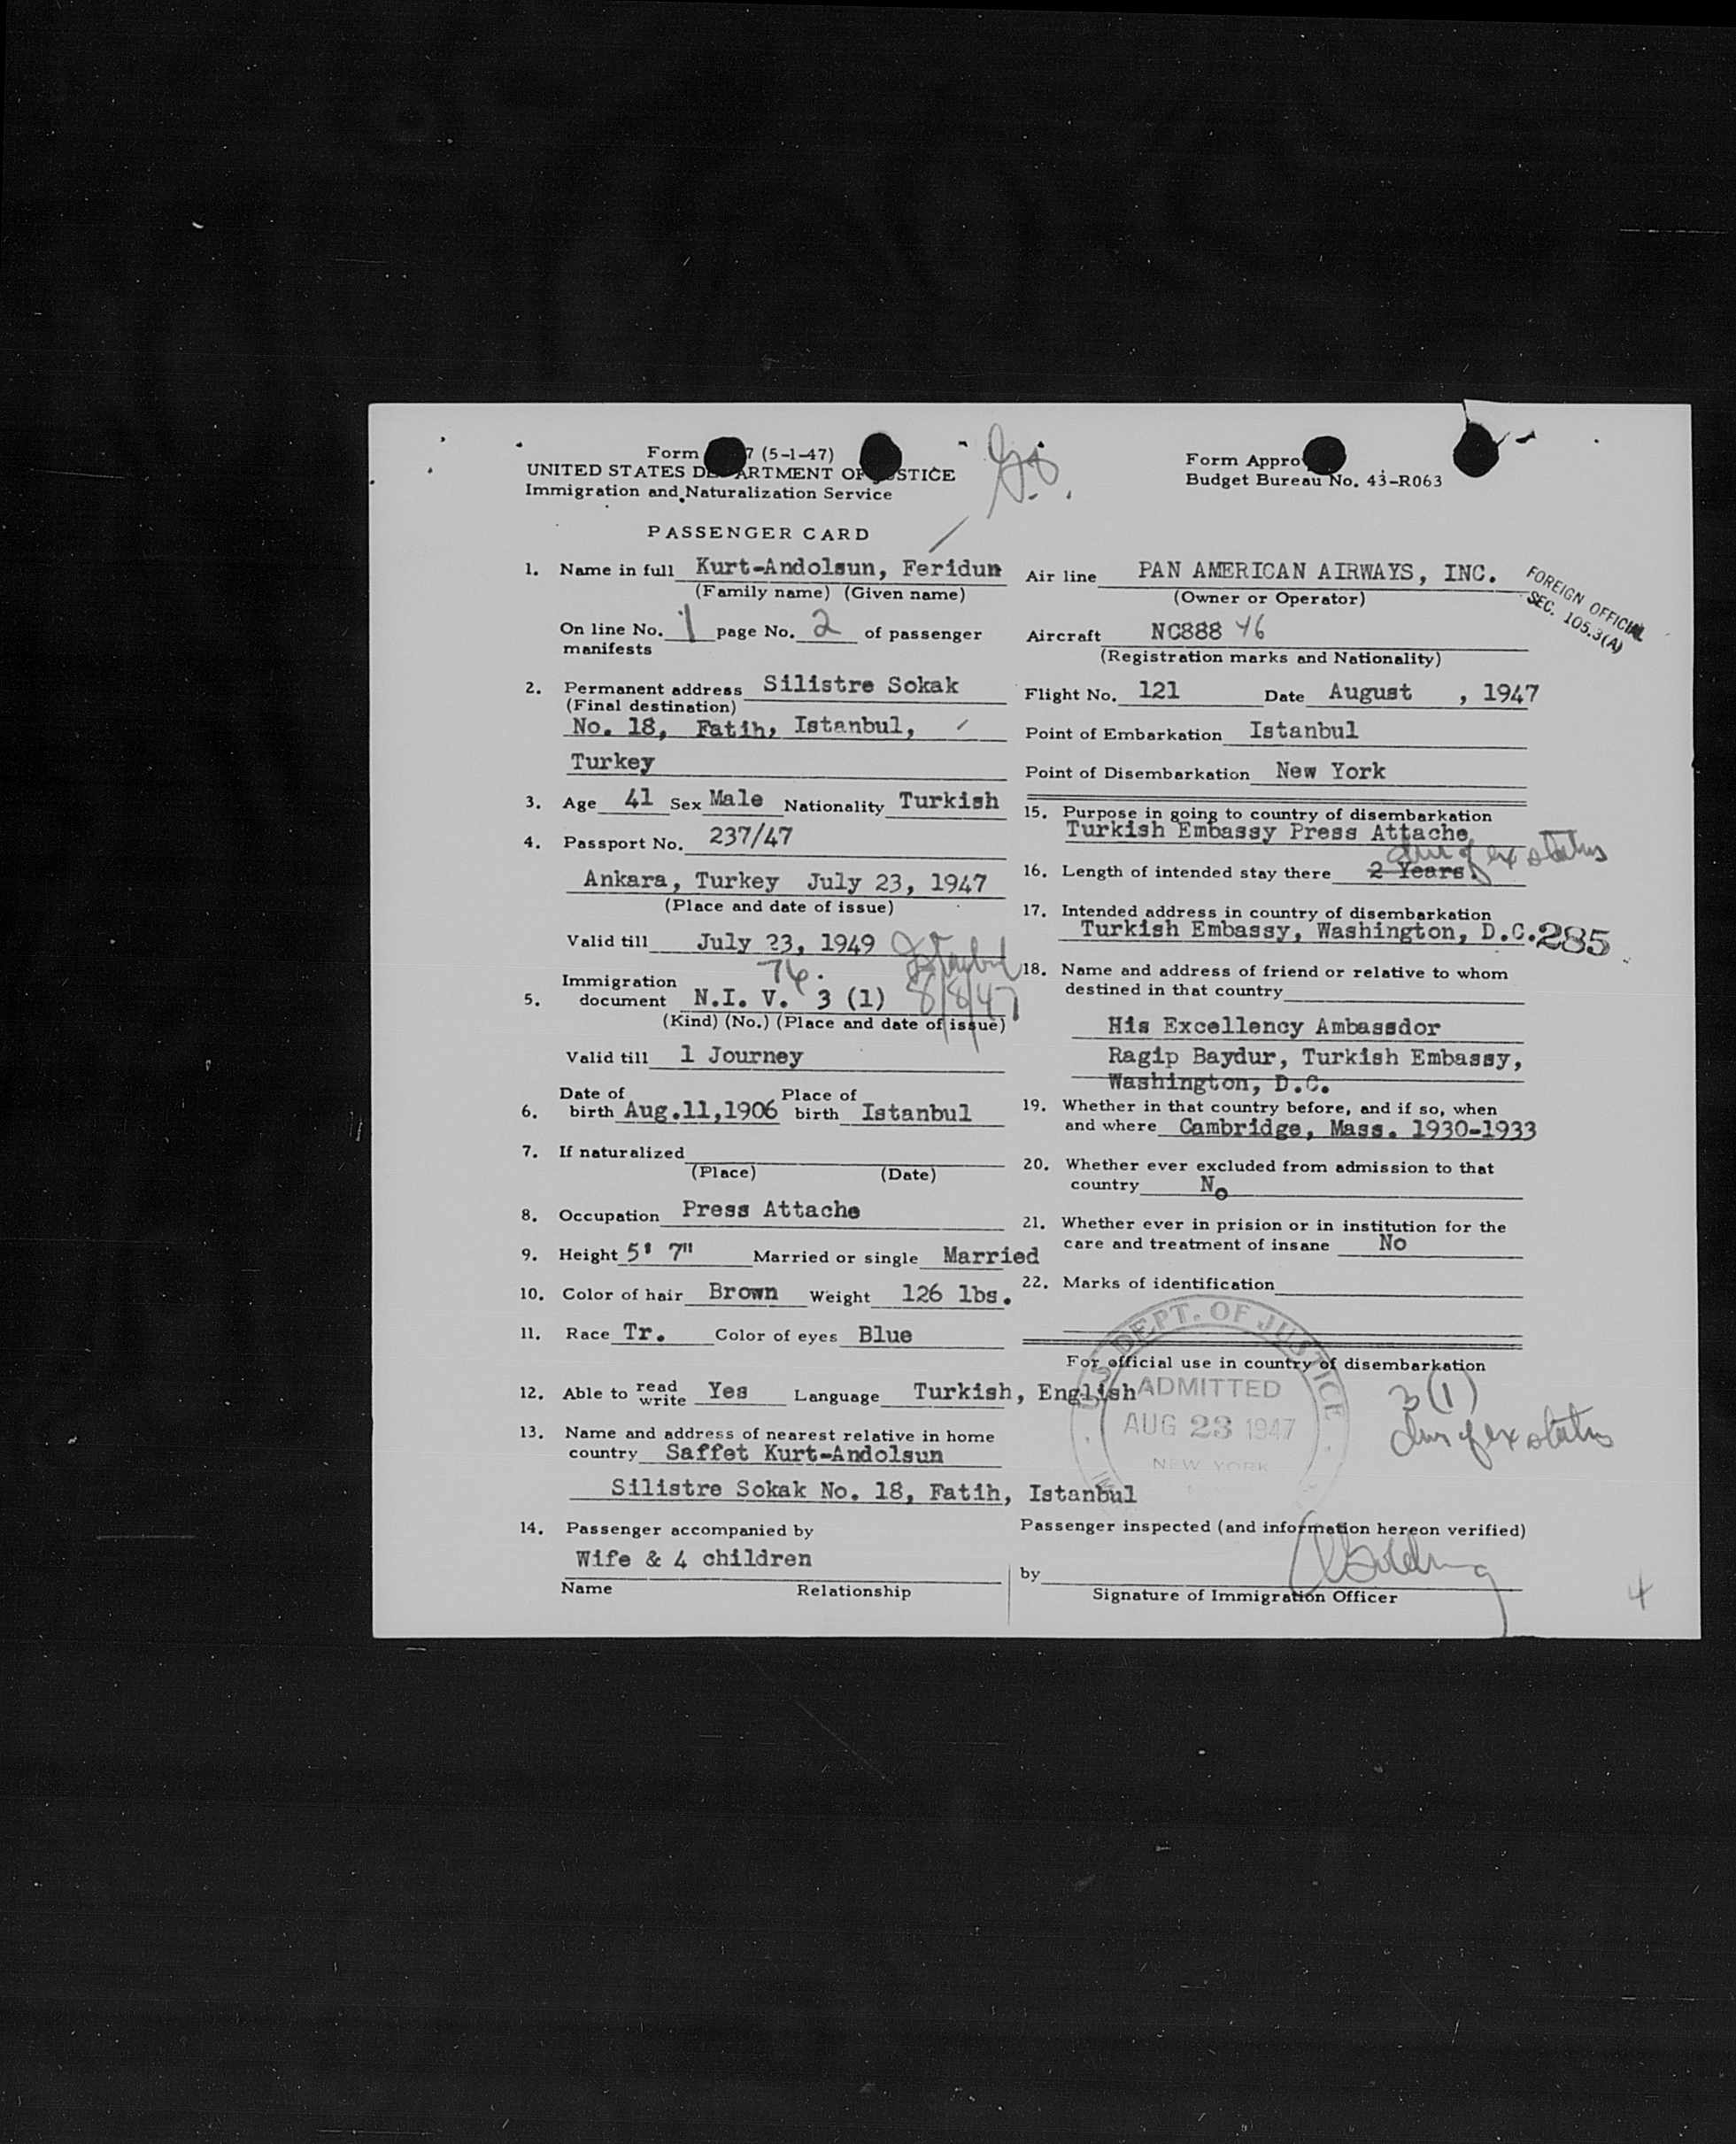 Form 7 (5-1-47)
UNITED STATES DEPARTMENT OF JUSTICE
Immigration and Naturalization Service
PASSENGER CARD
1. Name in full Kurt-Andolsun, Feridun
(Family name) (Given name)
On line No. 1 page No. 2 of passenger
manifests
2. Permanent address Silistre Sokak
(Final destination)
No. 18, Fatih, Istanbul,
Turkey
3. Age 41 Sex Male Nationality Turkish
4. Passport No. 237/47
Ankara, Turkey July 23, 1947
(Place and date of issue)
Valid till July 23, 1949 Istanbul
76.
Immigration
5. document N.I. V. 3 (1) 8/8/47
(Kind) (No.) (Place and date of issue)
Valid till 1 Journey
Date of Place of
6. birth Aug.11,1906 birth Istanbul
7. If naturalized
(Place) (Date)
8. Occupation Press Attache
9. Height 5' 7" Married or single Married
10. Color of hair Brown Weight 126 lbs.
11. Race Tr. Color of eyes Blue
12. Able to read write Yes Language Turkish, English
13. Name and address of nearest relative in home
country Saffet Kurt-Andolsun
Silistre Sokak No. 18, Fatih, Istanbul
14. Passenger accompanied by
Wife & 4 children
Name Relationship
Form Appro
Budget Bureau No. 43-R063
Air line PAN AMERICAN AIRWAYS, INC.
(Owner or Operator)
FOREIGN OFFICIAL
SEC. 105.3(A)
Aircraft NC888 46
(Registration marks and Nationality)
Flight No. 121 Date August , 1947
Point of Embarkation Istanbul
Point of Disembarkation New York
15. Purpose in going to country of disembarkation
Turkish Embassy Press Attache
dur of ex status
16. Length of intended stay there 2 Years.
17. Intended address in country of disembarkation
Turkish Embassy, Washington, D.C. 285
18. Name and address of friend or relative to whom
destined in that country
His Excellency Ambassdor
Ragip Baydur, Turkish Embassy,
Washington, D.C.
19. Whether in that country before, and if so, when
and where Cambridge, Mass. 1930-1933
20. Whether ever excluded from admission to that
country No
21. Whether ever in prision or in institution for the
care and treatment of insane No
22. Marks of identification
For official use in country of disembarkation
U.S. DEPT. OF JUSTICE
ADMITTED
AUG 23 1947
NEW YORK
3(1)
dur of ex status
Passenger inspected (and information hereon verified)
by
Signature of Immigration Officer
4